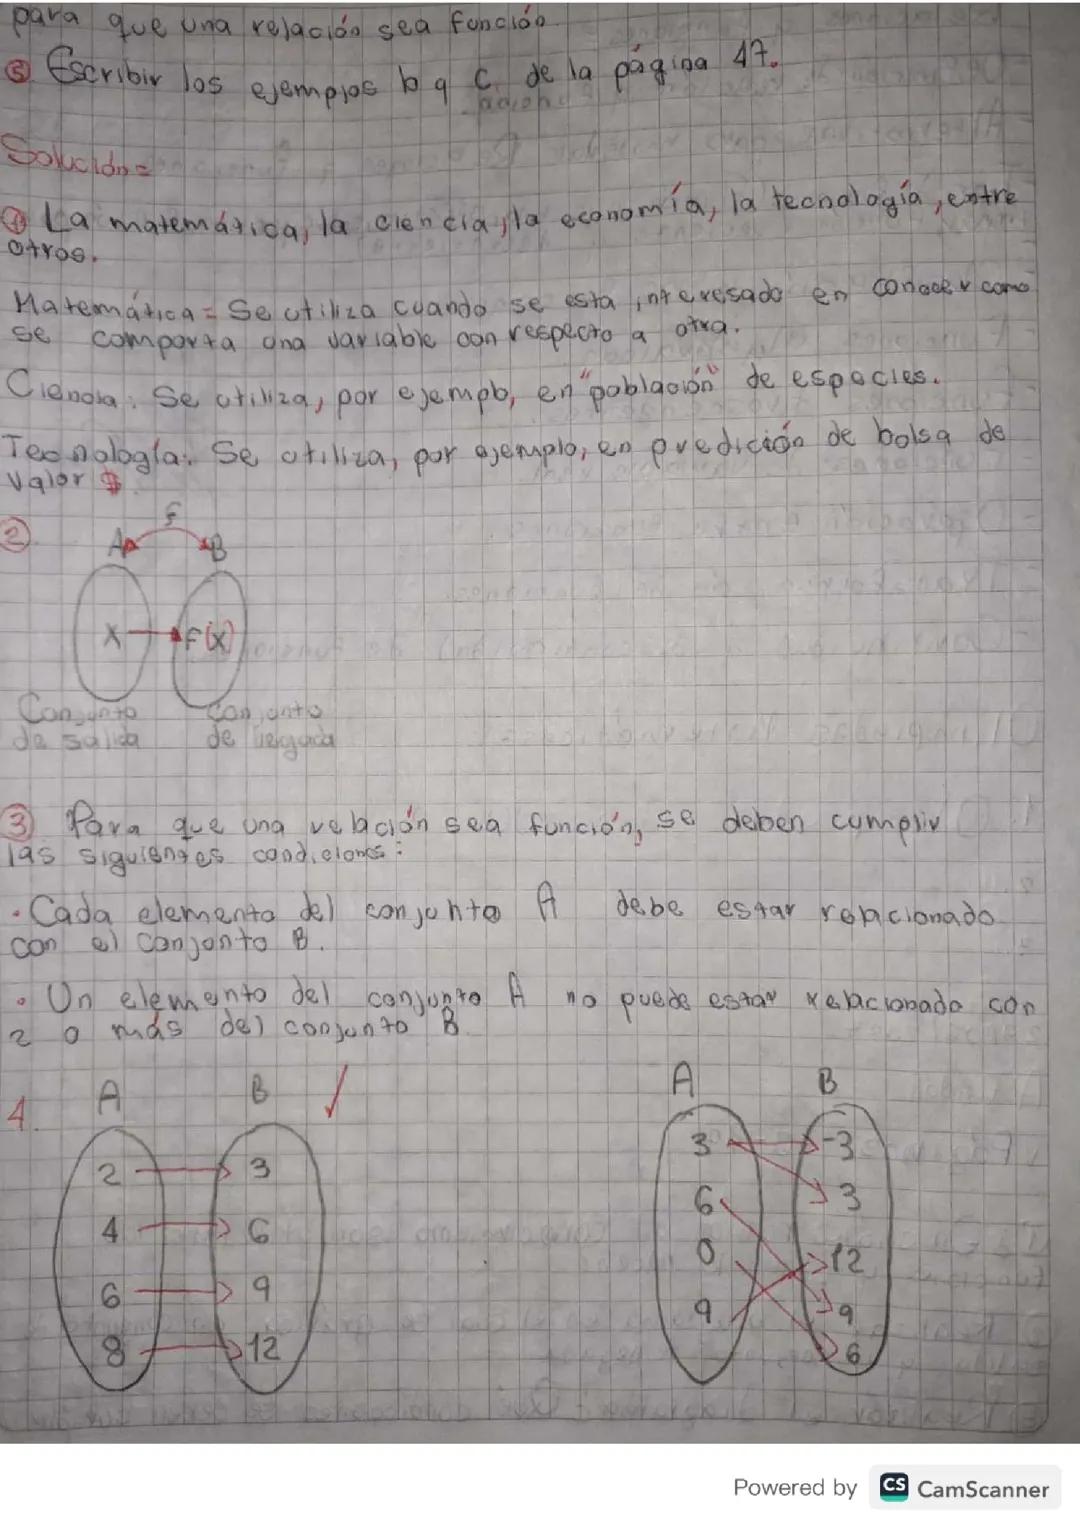 para que una relación sea función.
⑤ Escribir los ejemplos b y c de la página 47.
Solución=
① La matemática, la ciencia, la economía, la tecnología, entre
otros.
Matemática= Se utiliza cuando se esta interesado en conocer como
se comporta una variable con respecto a otra.
Ciencia: Se utiliza, por ejemplo, en "población" de especies.
Tecnología: Se utiliza, por ejemplo, en predición de bolsa de
valor $
② f
A B
X f(x)
Conjunto de salida
Conjunto de llegada
③ Para que una relación sea función, se deben cumplir
las siguientes condiciones:
• Cada elemento del conjunto A debe estar relacionado
con el conjunto B.
• Un elemento del conjunto A no puede estar relacionado con
2 o más del conjunto B
4. A B ✓ A B
2 3 3 -3
4 6 6 3
6 9 0 12
8 12 9 9
6
Powered by CS CamScanner